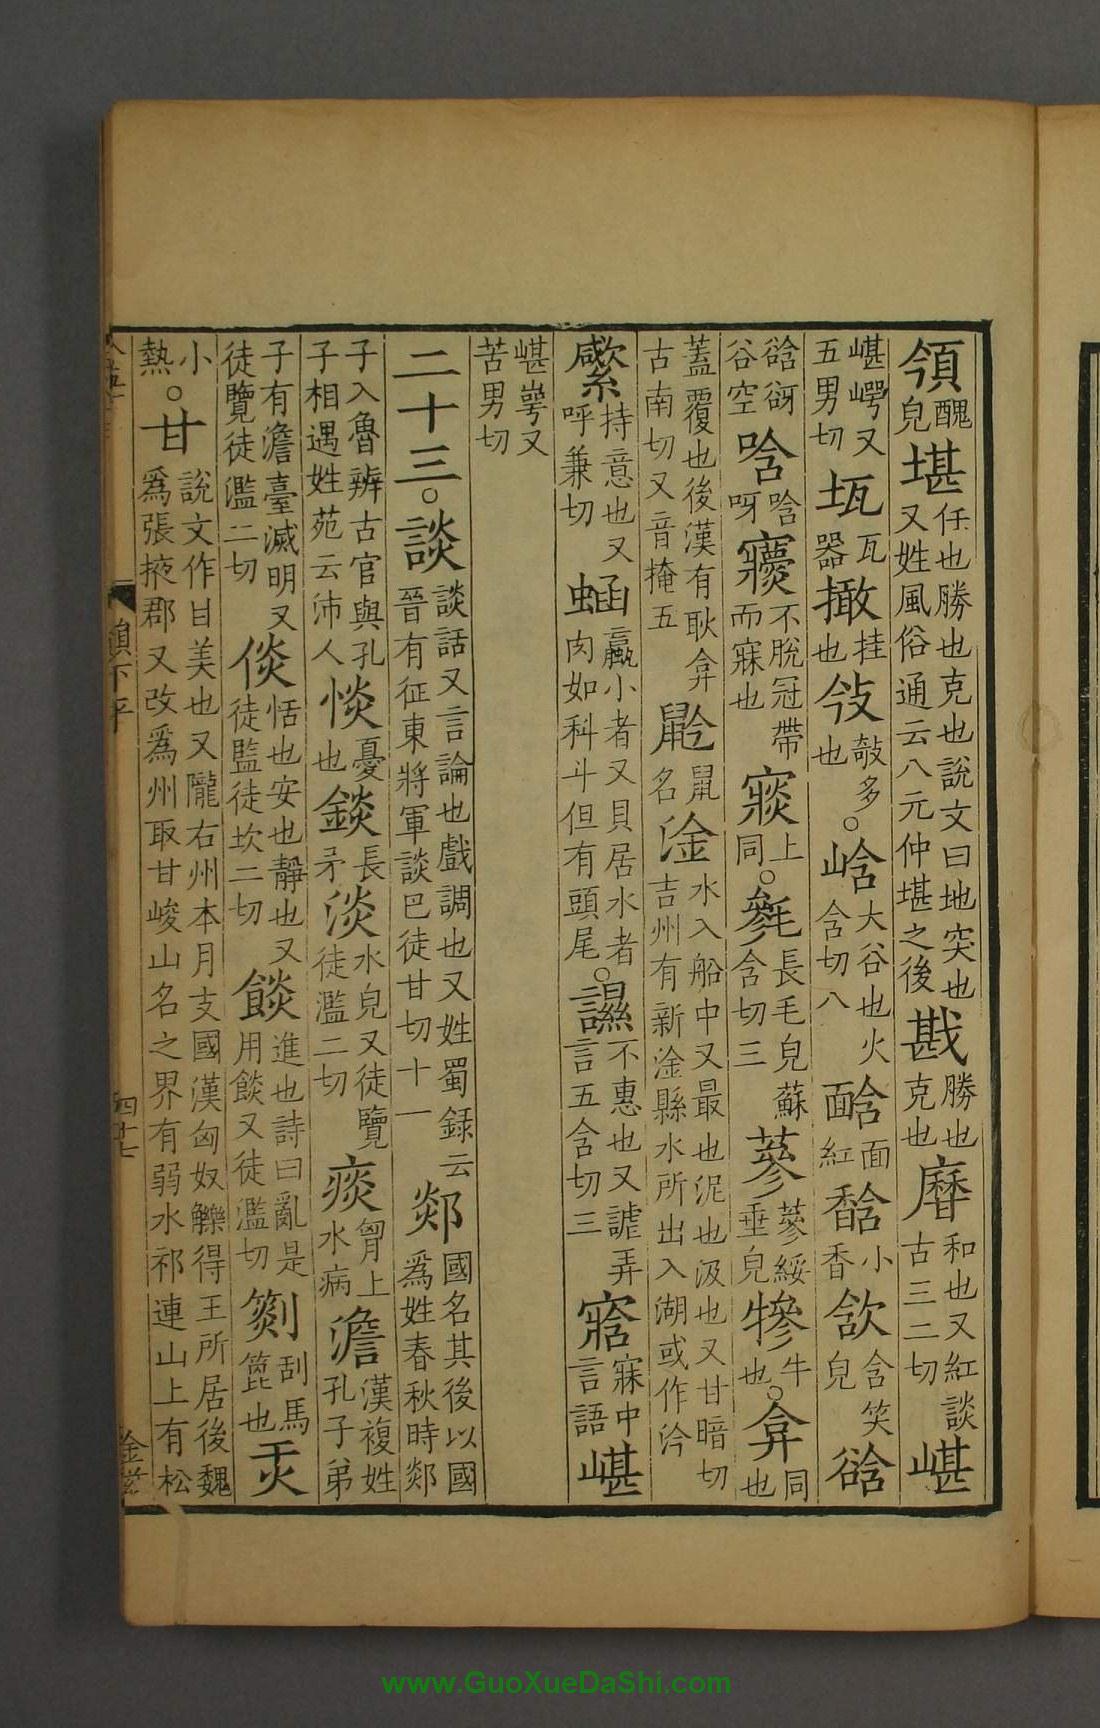 領醜皃堪任也勝也克也說文曰地突也又姓風俗通云八元仲堪之後戡勝也克也㽎和也又紅談古三二切嵁
嵁崿又五男切㼝瓦器撖挂也㪁敲多也。峆大谷也火含切八䤴面紅馠小香欱含笑皃谽
谽谺谷空唅唅呀㝲不脫冠帶而寐也㝪上同。毿長毛皃蘇含切三蔘蔘綏垂皃犙牛也。弇同也
蓋覆也後漢有耿弇古南切又音掩五鼸鼠名淦水入船中又最也泥也汲也又甘暗切吉州有新淦縣水所出入湖或作汵
䌠持意也又呼兼切蜬蠃小者又貝居水者肉如科斗但有頭尾。𧬘不惠也又謔弄言五含切三㝓寐中言語嵁
嵁崿又苦男切
二十三。談談話又言論也戲調也又姓蜀錄云晉有征東將軍談巴徒甘切十一郯國名其後以國爲姓春秋時郯
子入魯辨古官與孔子相遇姓苑云沛人惔憂也錟長矛淡水皃又徒覽徒濫二切痰胷上水病澹漢複姓孔子弟
子有澹臺滅明又徒覽徒濫二切倓恬也安也靜也又徒監徒坎二切餤進也詩曰亂是用餤又徒濫切𠟦刮馬篦也㶣
小熱。甘說文作甘美也又隴右州本月支國漢匈奴觻得王所居後魏爲張掖郡又改爲州取甘峻山名之界有弱水祁連山上有松
韻下平
四十七
金滋
www.GuoXueDaShi.com